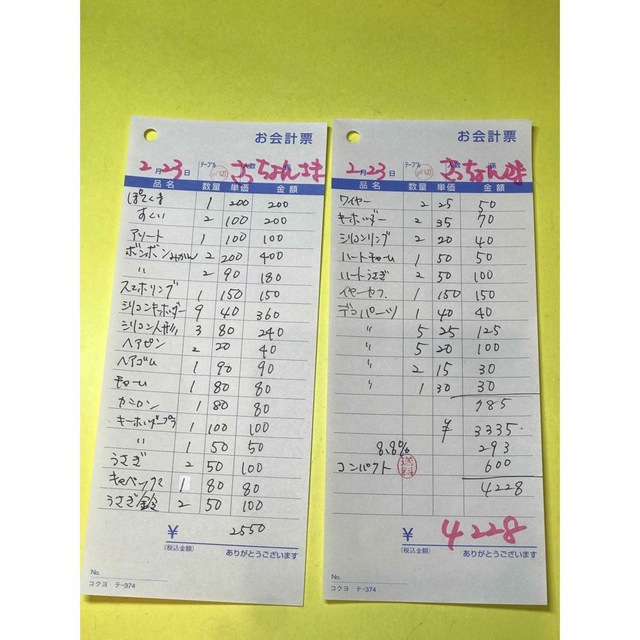 お会計票
2月23日 テーブル 〆切 人数 係
さっちょん様
品名 数量 単価 金額
ぽてくま 1 200 200
すくい 2 100 200
アソート 1 100 100
ボンボンみかん 2 200 400
〃 2 90 180
スマホリング 1 150 150
シリコンキーホルダー 9 40 360
シリコン人形 3 80 240
ヘアピン 2 20 40
ヘアゴム 1 90 90
チャーム 1 80 80
カニロン 1 80 80
キーホルダープラ 1 100 100
〃 1 50 50
うさぎ 2 50 100
キャベツクス 1 80 80
うさぎ鈴 2 50 100
¥ 2550
(税込金額)
ありがとうございます
No.
コクヨ テ-374
お会計票
2月23日 テーブル 〆切 人数 係
さっちょん様
品名 数量 単価 金額
ワイヤー 2 25 50
キーホルダー 2 35 70
シリコンリング 2 20 40
ハートチャーム 1 50 50
ハートうさぎ 2 50 100
イヤーセフ 1 150 150
デコパーツ 1 40 40
〃 5 25 125
〃 5 20 100
〃 2 15 30
〃 1 30 30
785
¥ 3335.
8.8% 293
コンパクト 送料 600
4228
¥ 4228
(税込金額)
ありがとうございます
No.
コクヨ テ-374